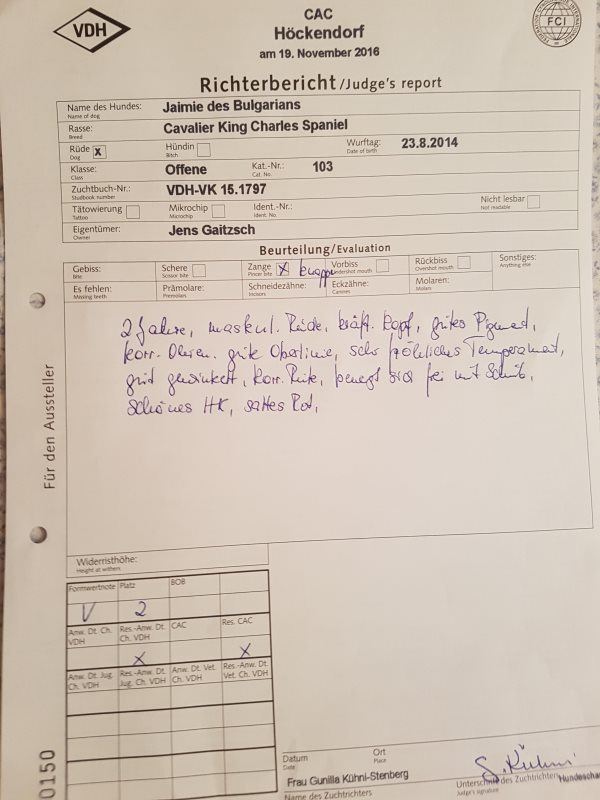 VDH
CAC
Höckendorf
am 19. November 2016
FCI
Richterbericht/Judge's report
Name des Hundes: Jaimie des Bulgarians
Name of dog
Rasse: Cavalier King Charles Spaniel
Breed
Rüde x Hündin Wurftag: 23.8.2014
Dog Bitch Date of birth
Klasse: Offene Kat.-Nr.: 103
Class Cat. No.
Zuchtbuch-Nr.: VDH-VK 15.1797
Studbook number
Tätowierung Mikrochip Ident.-Nr.: Nicht lesbar
Tattoo Microchip Ident. No. Not readable
Eigentümer: Jens Gaitzsch
Owner
Beurteilung/Evaluation
Gebiss: Schere Zange X knapp Vorbiss Rückbiss Sonstiges:
Bite Scissor bite Pincer bite Undershot mouth Overshot mouth Anything else
Es fehlen: Prämolare: Schneidezähne: Eckzähne: Molaren:
Missing teeth Premolars Incisors Canines Molars
2 Jahre, maskul. Rüde, kräft. Kopf, gutes Pigment,
korr. Ohren, gute Oberlinie, sehr fröhliches Temperament,
gut gewinkelt, korr. Rute, bewegt sich frei mit Schub,
schönes HK, sattes Rot,
Für den Aussteller
Widerristhöhe:
Height at withers
Formwertnote Platz BOB
V 2
Anw. Dt. Ch. VDH Res.-Anw. Dt. Ch. VDH CAC Res. CAC
X X
Anw. Dt. Jug. Ch. VDH Res.-Anw. Dt. Jug. Ch. VDH Anw. Dt. Vet. Ch. VDH Res.-Anw. Dt. Vet. Ch. VDH
0150
Datum Ort
Date Place
Frau Gunilla Kühni-Stenberg
G. Kühni
Name des Zuchtrichters
Unterschrift des Zuchtrichters
Judge's signature